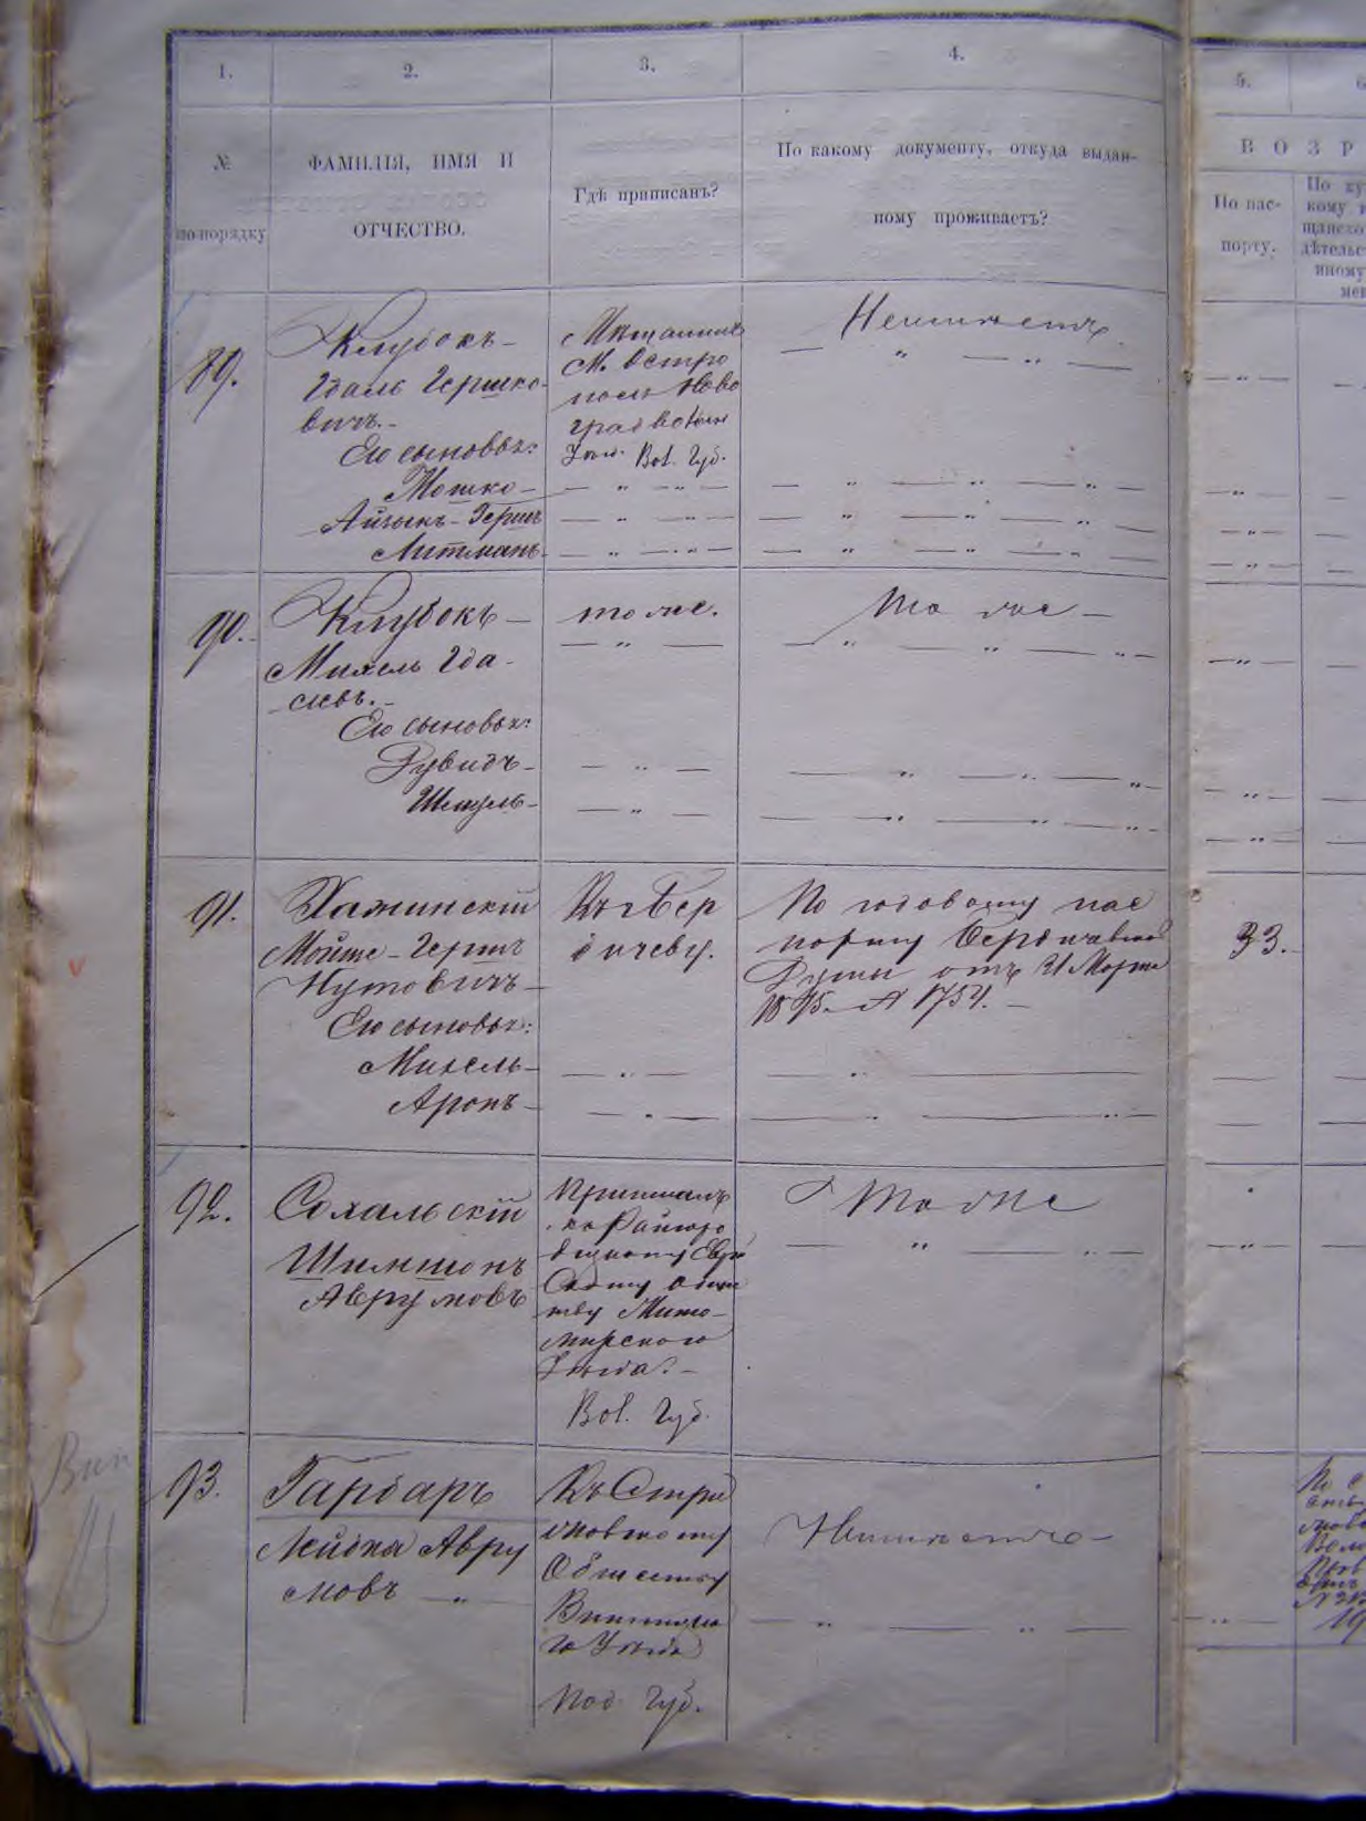 1. 2. 3. 4. 5.
В О З Р
№ по порядку
ФАМИЛІЯ, ИМЯ И
ОТЧЕСТВО.
Гдѣ приписанъ?
По какому документу, откуда выдан-
ному проживаетъ?
По пас-
порту.
89.
Клубокъ-
Гдаль Гершко-
вичъ.-
Его сыновья:
Мошко-
Айзыкъ-Гершъ
Литманъ-
Мѣщанинъ
М. Остро
поля Ново
градволын
Уѣзд. Вол. Губ.
Неимѣетъ
90.
Клубокъ-
Михель Гда-
левъ.-
Его сыновья:
Рувидъ-
Шмуль-
тоже.
То же-
91.
Хажинскій
Мойше-Гершъ
Нутовичъ-
Его сыновья:
Михель-
Аронъ-
Къ г. Бер
дичеву.
По годовому пас
порту Бердичевской
Думы отъ 21 Марта
1875. № 1754.-
33.
92.
Сохальскій
Шимшонъ
Аврумовъ
Приписанъ
къ Райгоро
дскому Евре
скому обще
тву Жито-
мирскаго
Уѣзда.-
Вол. Губ.
То же
93.
Гарбаръ
Лейбка Авру
мовъ
Къ Стри
жовскому
Обществу
Винницка
го Уѣзда
Под. Губ.
Неимѣетъ-
Вин